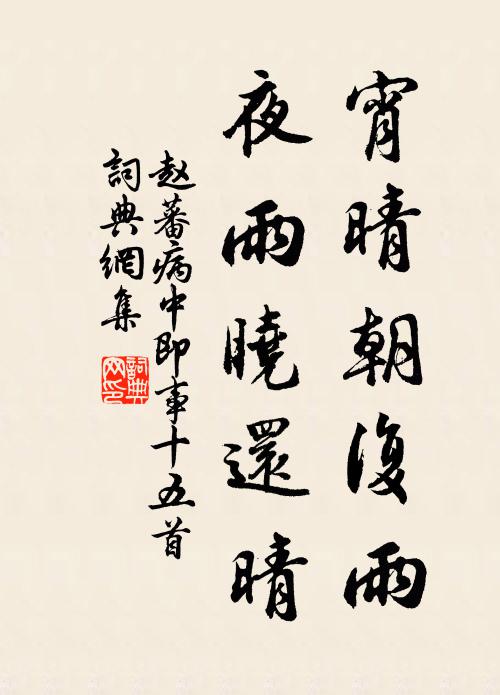 宵晴朝復雨
夜雨曉還晴
赵蕃病中即事十五首
詞典網集
詞典網印